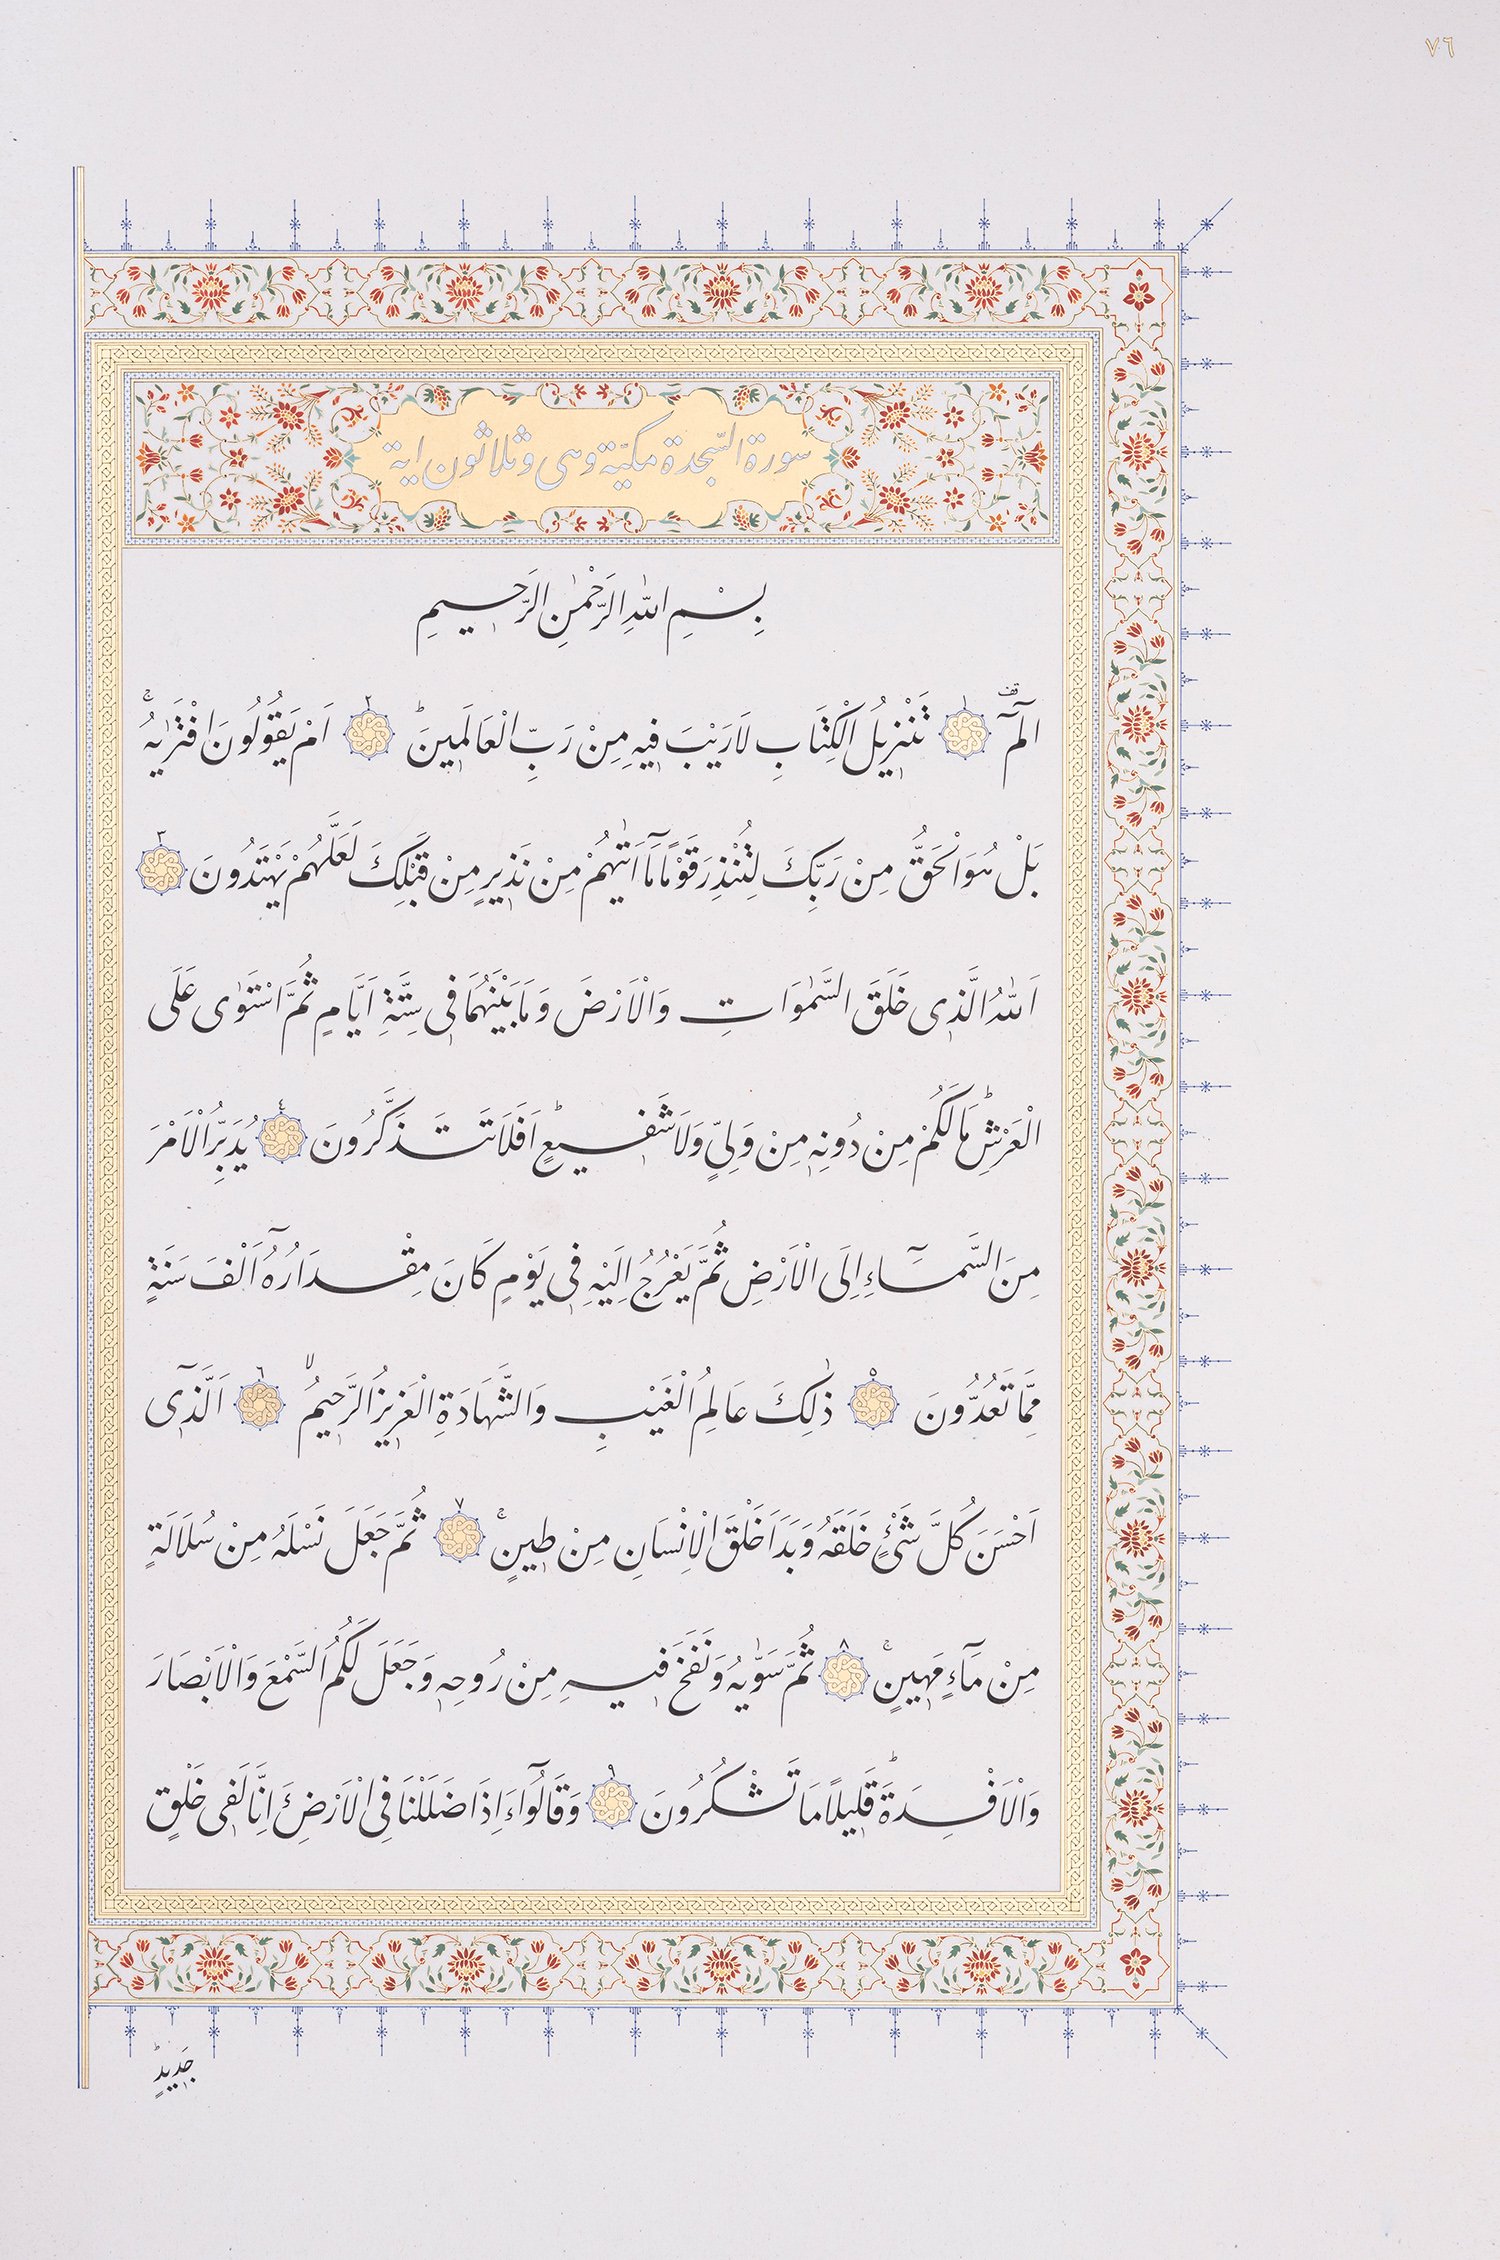 ٧٦
سورة السجدة مكية وهى ثلاثون اية
بِسْمِ اللّٰهِ الرَّحْمٰنِ الرَّحِيمِ
الٓمٓ ۗ ١ تَنْزِيلُ الْكِتَابِ لَا رَيْبَ فِيهِ مِنْ رَبِّ الْعَالَمِينَ ۜ ٢ اَمْ يَقُولُونَ افْتَرٰيهُ ۚ
بَلْ هُوَ الْحَقُّ مِنْ رَبِّكَ لِتُنْذِرَ قَوْمًا مَٓا اَتٰيهُمْ مِنْ نَذِيرٍ مِنْ قَبْلِكَ لَعَلَّهُمْ يَهْتَدُونَ ٣
اَللّٰهُ الَّذِى خَلَقَ السَّمٰوَاتِ وَالْاَرْضَ وَمَا بَيْنَهُمَا فِى سِتَّةِ اَيَّامٍ ثُمَّ اسْتَوٰى عَلَى
الْعَرْشِ ۜ مَا لَكُمْ مِنْ دُونِهِ مِنْ وَلِيٍّ وَلَا شَفِيعٍ ۜ اَفَلَا تَتَذَكَّرُونَ ٤ يُدَبِّرُ الْاَمْرَ
مِنَ السَّمَٓاءِ اِلَى الْاَرْضِ ثُمَّ يَعْرُجُ اِلَيْهِ فِى يَوْمٍ كَانَ مِقْدَارُهُٓ اَلْفَ سَنَةٍ
مِمَّا تَعُدُّونَ ٥ ذٰلِكَ عَالِمُ الْغَيْبِ وَالشَّهَادَةِ الْعَزِيزُ الرَّحِيمُ ۙ ٦ اَلَّذِٓى
اَحْسَنَ كُلَّ شَىْءٍ خَلَقَهُ وَبَدَاَ خَلْقَ الْاِنْسَانِ مِنْ طِينٍ ۚ ٧ ثُمَّ جَعَلَ نَسْلَهُ مِنْ سُلَالَةٍ
مِنْ مَٓاءٍ مَهِينٍ ۚ ٨ ثُمَّ سَوّٰيهُ وَنَفَخَ فِيهِ مِنْ رُوحِهِ وَجَعَلَ لَكُمُ السَّمْعَ وَالْاَبْصَارَ
وَالْاَفْـِٔدَةَ ۜ قَلِيلًا مَا تَشْكُرُونَ ٩ وَقَالُٓوا ءَاِذَا ضَلَلْنَا فِى الْاَرْضِ ءَاِنَّا لَفِى خَلْقٍ
جَدِيدٍ ۜ